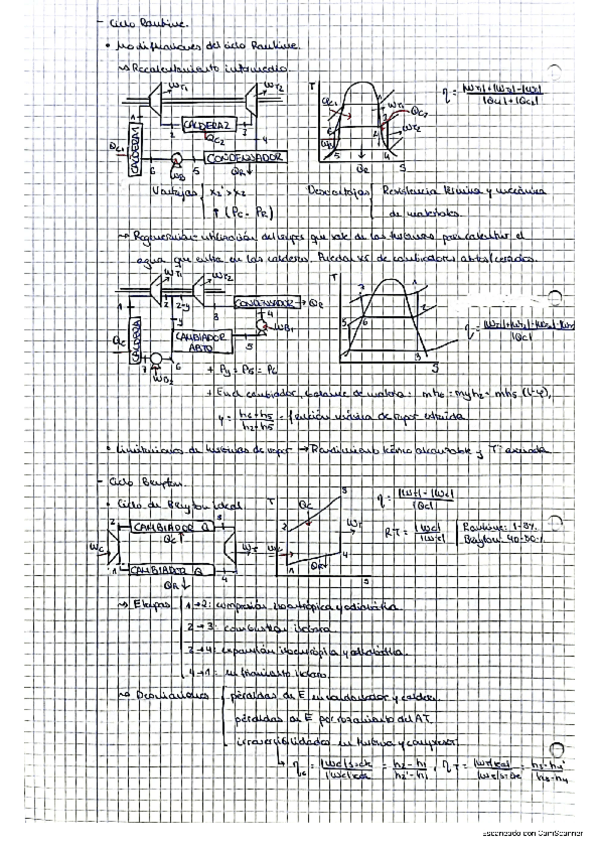 - Ciclo Rankine.
• Modificaciones del ciclo Rankine.
→ Recalentamiento intermedio.
WT1 WT2 T η = |WT1|+|WT2|-|WB| / |QC1|+|QC2|
CALDERA 2
QC2
CALDERA 1 QC1 CONDENSADOR
WB QR
Ventajas x2' > x2 Desventajas Resistencia térmica y mecánica
↑ (PC - PR) de materiales.
→ Regeneración: utilización del vapor que sale de las turbinas para calentar el
agua que entra en las calderas. Pueden ser de cambiadores abtos/cerrados.
WT1 WT2 T
CONDENSADOR → QR
CALDERA QC CAMBIADOR ABTO WB1
WB2 + Py = P5 = P6
+ En el cambiador, balance de materia: mh6 = myh2 + mh5 (1-y),
y = h6-h5 / h2-h5 = fracción másica de vapor extraída
• Limitaciones de turbinas de vapor → Rendimiento térmico alcanzable y Tª elevada
- Ciclo Brayton.
• Ciclo de Brayton ideal T η = |WT|-|WC| / |QC|
2 CAMBIADOR Q 3
QC
WC WT RT = |WC| / |WT| Rankine: 1-3%. Brayton: 40-80%.
1 CAMBIADOR Q 4
QR
→ Etapas 1→2: compresión isoentrópica y adiabática.
2→3: combustión isobara.
3→4: expansión isoentrópica y adiabática.
4→1: enfriamiento isobaro.
→ Desviaciones pérdidas de E en condensador y caldera.
pérdidas de E por rozamiento del AT.
irreversibilidades en turbina y compresor.
↳ ηc = |WC|s=ck / |WC|real = h2-h1 / h2'-h1, ηT = |WT|real / |WT|s=ck = h3-h4' / h3-h4
Escaneado con CamScanner